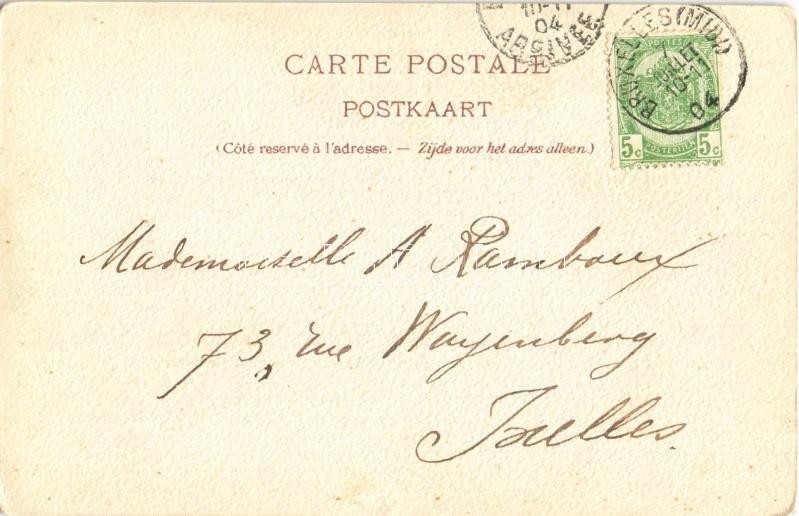 10-11
04
ARRIVÉE
BRUXELLES (MIDI)
JUILT
10-11
04
CARTE POSTALE
POSTKAART
(Côté reservé à l'adresse. — Zijde voor het adres alleen.)
POSTERIJEN
5c 5c
Mademoiselle A Ramboux
73, rue Wayenberg
Ixelles.